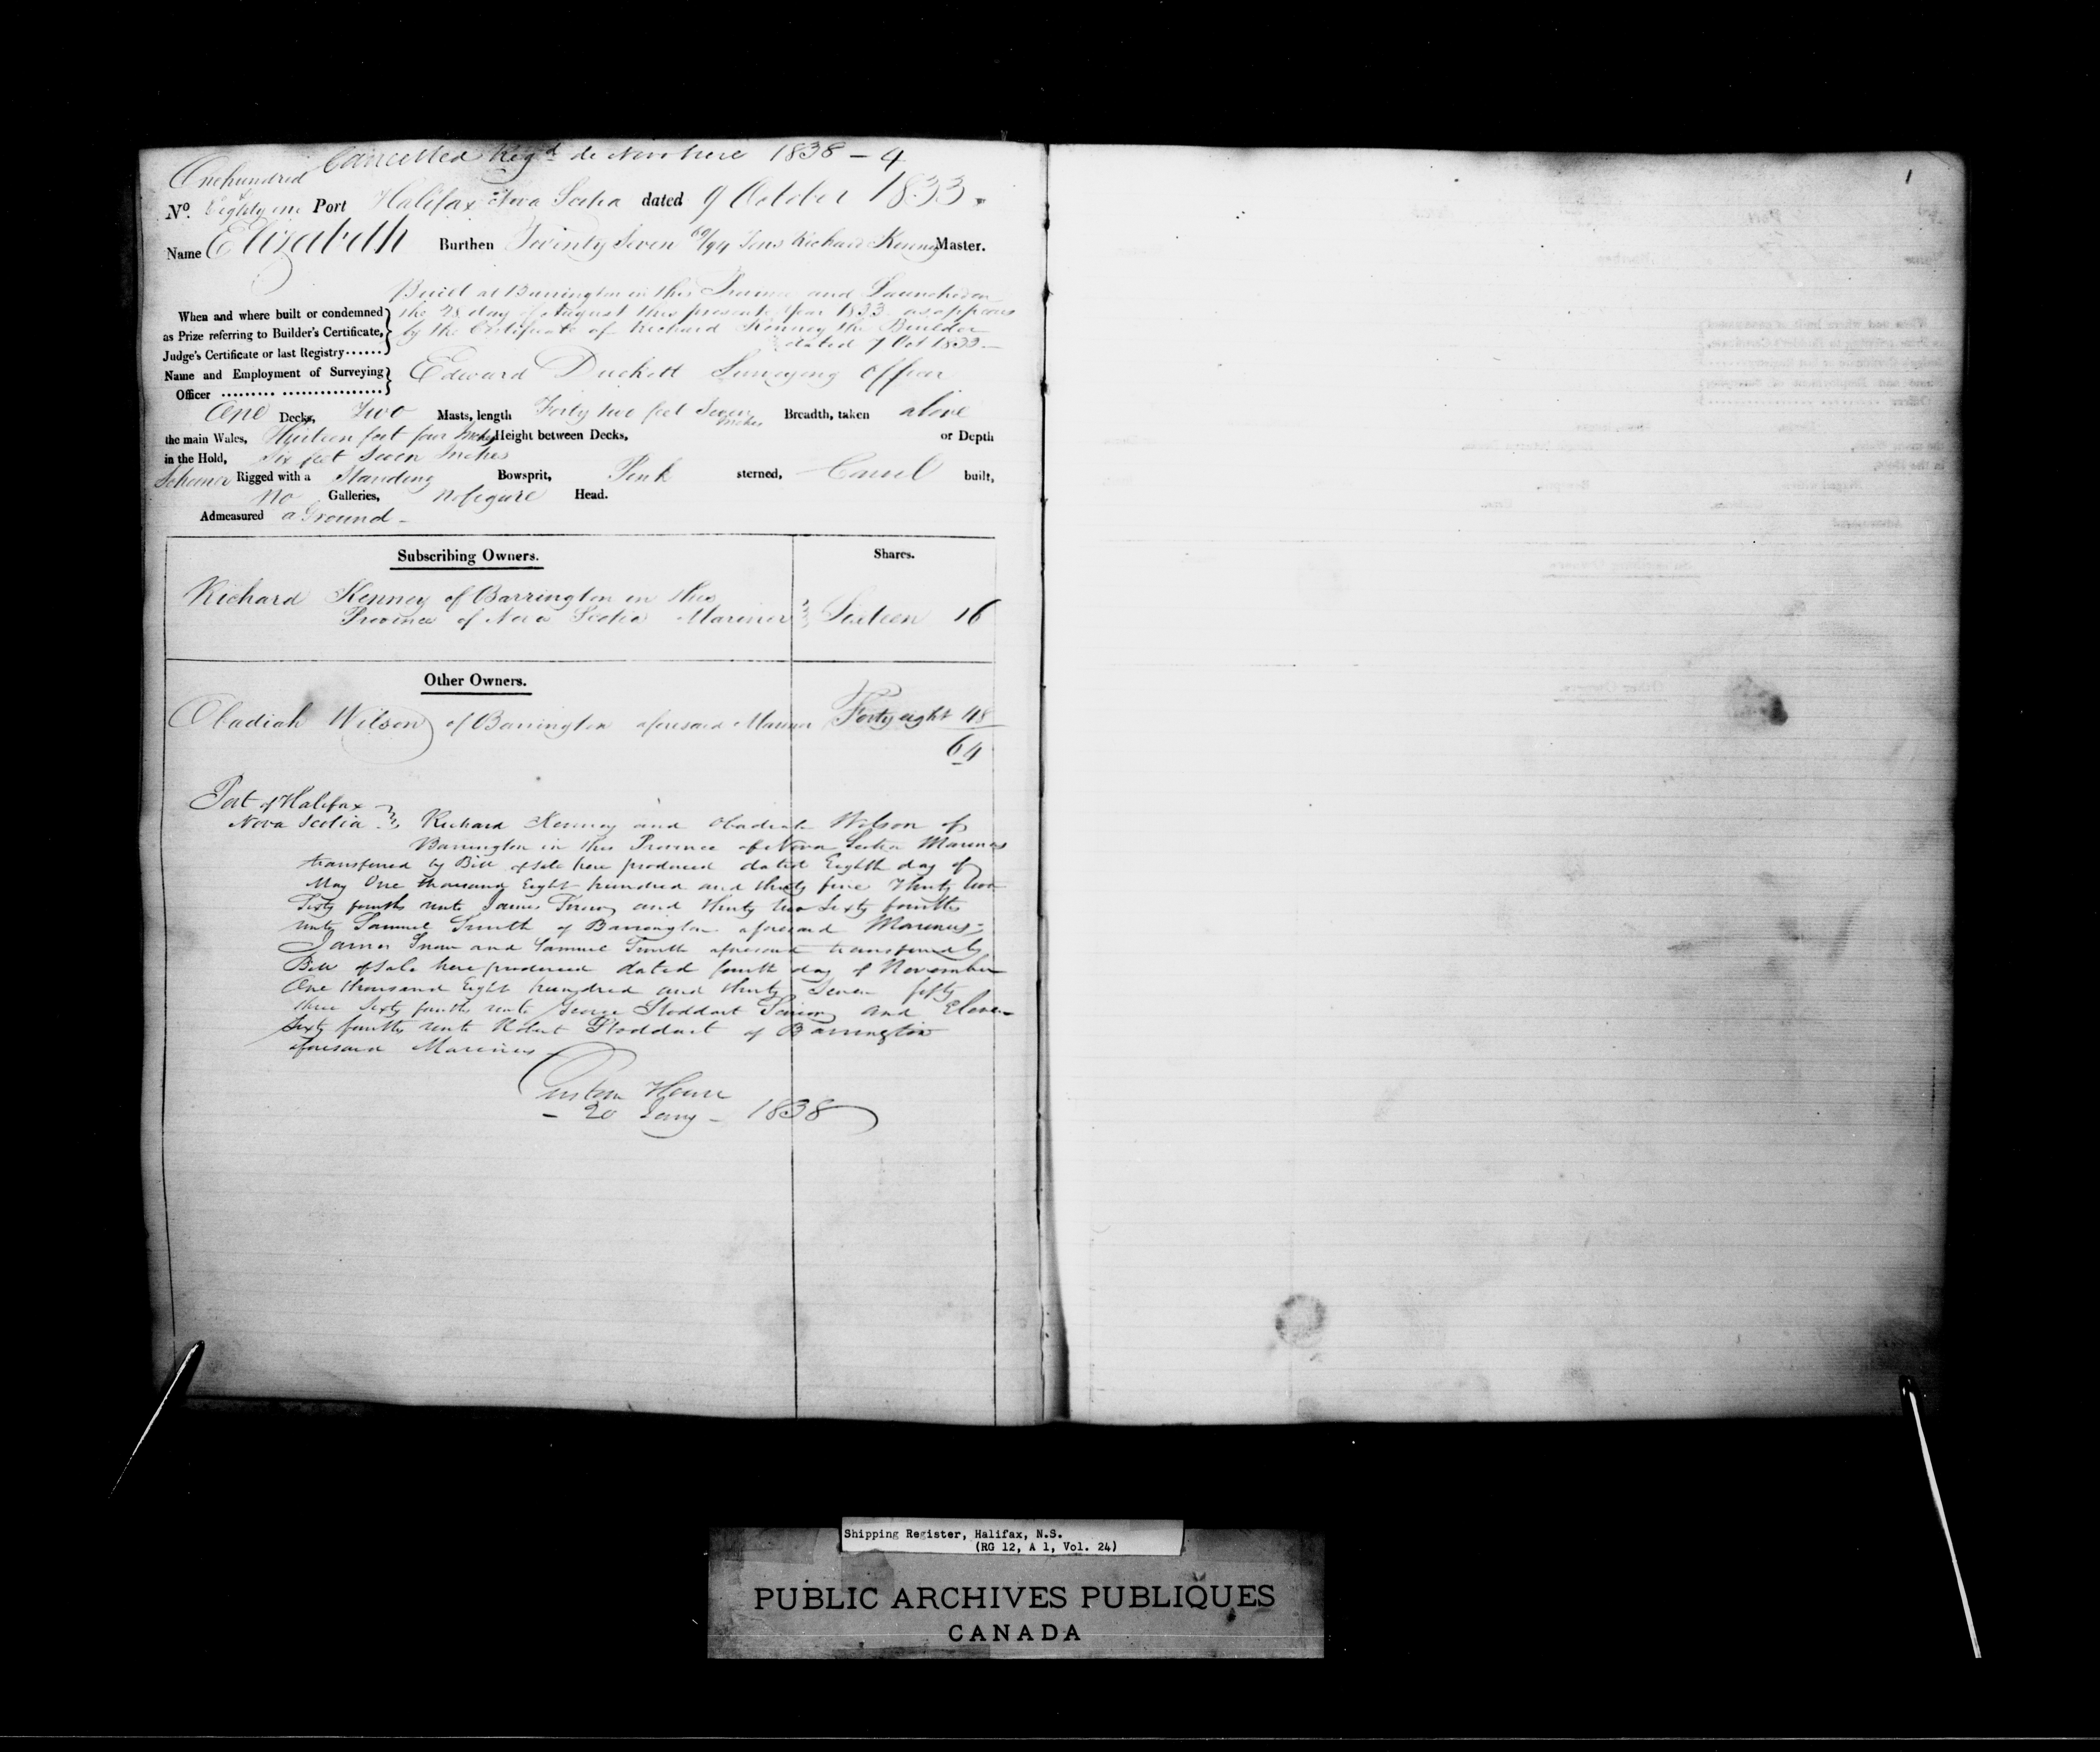 Cancelled Regd de Novo here 1838 - 4
One hundred
No. & Eighty one Port Halifax Nova Scotia dated 9 October 1833.
Name Elizabeth Burthen Twenty Seven 69/94 Tons Richard Kenney Master.
Built at Barrington in this Province and Launched on
When and where built or condemned } the 28 day of August this present Year 1833 as appears
as Prize referring to Builder's Certificate, } by the Certificate of Richard Kenney the Builder
Judge's Certificate or last Registry...... } dated 7 Oct 1833 -
Name and Employment of Surveying } Edward Duckett Surveying Officer
Officer ......... ................. }
One Decks, Two Masts, length Forty two feet Seven Inches Breadth, taken above
the main Wales, Thirteen feet four Inches Height between Decks, or Depth
in the Hold, Six feet Seven Inches
Schooner Rigged with a Standing Bowsprit, Pink sterned, Carvel built,
No Galleries, No figure Head.
Admeasured a Ground -
Subscribing Owners. Shares.
Richard Kenney of Barrington in this
Province of Nova Scotia Mariner } Sixteen 16
Other Owners.
Obadiah Wilson of Barrington aforesaid Mariner Forty eight 48
64
Port of Halifax
Nova Scotia } Richard Kenney and Obadiah Wilson of
Barrington in this Province of Nova Scotia Mariners
transferred by Bill of Sale here produced dated Eighth day of
May One thousand Eight hundred and thirty five Thirty two
Sixty fourths unto James Snow and thirty two Sixty fourths
unto Samuel Smith of Barrington aforesaid Mariners;
James Snow and Samuel Smith aforesaid transferred by
Bill of Sale here produced dated fourth day of November
One thousand Eight hundred and thirty Seven fifty
three Sixty fourths unto George Stoddart Senior and Eleven
Sixty fourths unto Robert Stoddart of Barrington
aforesaid Mariners
Custom House
- 20 Jany - 1838
1
Shipping Register, Halifax, N.S.
(RG 12, A 1, Vol. 24)
PUBLIC ARCHIVES PUBLIQUES
CANADA